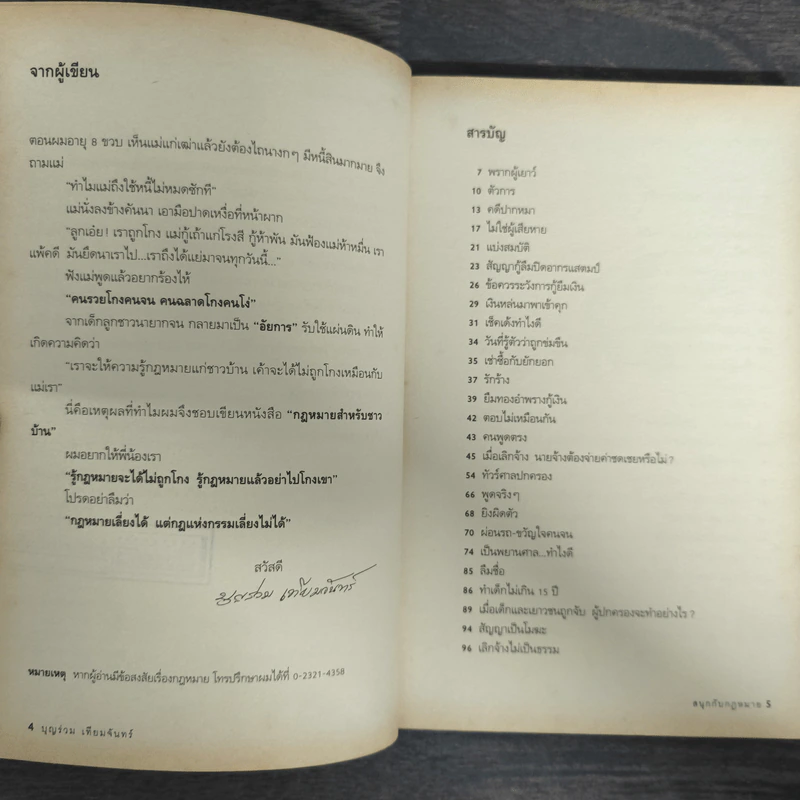 จากผู้เขียน
ตอนผมอายุ 8 ขวบ เห็นแม่แก่เฒ่าแล้วยังต้องไถนางกๆ มีหนี้สินมากมาย จึง
ถามแม่
"ทำไมแม่ถึงใช้หนี้ไม่หมดซักที"
แม่นั่งลงข้างคันนา เอามือปาดเหงื่อที่หน้าผาก
"ลูกเอ๋ย! เราถูกโกง แม่กู้เถ้าแก่โรงสี กู้ห้าพัน มันฟ้องแม่ห้าหมื่น เรา
แพ้คดี มันยึดนาเราไป...เราถึงได้แย่มาจนทุกวันนี้..."
ฟังแม่พูดแล้วอยากร้องไห้
"คนรวยโกงคนจน คนฉลาดโกงคนโง่"
จากเด็กลูกชาวนายากจน กลายมาเป็น "อัยการ" รับใช้แผ่นดิน ทำให้
เกิดความคิดว่า
"เราจะให้ความรู้กฎหมายแก่ชาวบ้าน เค้าจะได้ไม่ถูกโกงเหมือนกับ
แม่เรา"
นี่คือเหตุผลที่ทำไมผมจึงชอบเขียนหนังสือ "กฎหมายสำหรับชาว
บ้าน"
ผมอยากให้พี่น้องเรา
"รู้กฎหมายจะได้ไม่ถูกโกง รู้กฎหมายแล้วอย่าไปโกงเขา"
โปรดอย่าลืมว่า
"กฎหมายเลี่ยงได้ แต่กฎแห่งกรรมเลี่ยงไม่ได้"
สวัสดี
บุญร่วม เทียมจันทร์
หมายเหตุ หากผู้อ่านมีข้อสงสัยเรื่องกฎหมาย โทรปรึกษาผมได้ที่ 0-2321-4358
4 บุญร่วม เทียมจันทร์
สารบัญ
7 พรากผู้เยาว์
10 ตัวการ
13 คดีปากหมา
17 ไม่ใช่ผู้เสียหาย
21 แบ่งสมบัติ
23 สัญญากู้ลืมปิดอากรแสตมป์
26 ข้อควรระวังการกู้ยืมเงิน
29 เงินหล่นมาพาเข้าคุก
31 เช็คเด้งทำไงดี
34 วันที่รู้ตัวว่าถูกข่มขืน
35 เช่าซื้อกับยักยอก
37 รักร้าง
39 ยืมทองอำพรางกู้เงิน
42 ตอบไม่เหมือนกัน
43 คนพูดตรง
45 เมื่อเลิกจ้าง นายจ้างต้องจ่ายค่าชดเชยหรือไม่?
54 ทัวร์ศาลปกครอง
66 พูดจริงๆ
68 ยิงผิดตัว
70 ผ่อนรถ-ขวัญใจคนจน
74 เป็นพยานศาล...ทำไงดี
85 ลืมชื่อ
86 ทำเด็กไม่เกิน 15 ปี
89 เมื่อเด็กและเยาวชนถูกจับ ผู้ปกครองจะทำอย่างไร?
94 สัญญาเป็นโมฆะ
96 เลิกจ้างไม่เป็นธรรม
สนุกกับกฎหมาย 5